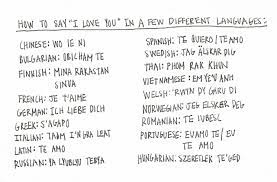 HOW TO SAY "I LOVE YOU" IN A FEW DIFFERENT LANGUAGES:
CHINESE: WO IE NI
BULGARIAN: OBICHAM TE
FINNISH: MINA RAKASTAN
SINUA
FRENCH: JE T'AIME
GERMAN: ICH LIEBE DICH
GREEK: S'AGAPO
ITALIAN: TAIM I'N GRA LEAT
LATIN: TE AMO
RUSSIAN: YA LYUBLYU TEBYA
SPANISH: TE QUIERO/TE AMO
SWEDISH: JAG ÄLSKAR DIG
THAI: PHOM RAK KHUN
VIETNAMESE: EM YE'U ANH
WELSH: 'RWIN DY GARU DI
NORWEGIAN: JEG ELSKER DEG
ROMANIAN: TE IUBESC
PORTUGUESE: EU AMO TE/EU
TE AMO
HUNGARIAN: SZERETLEK TE'GED